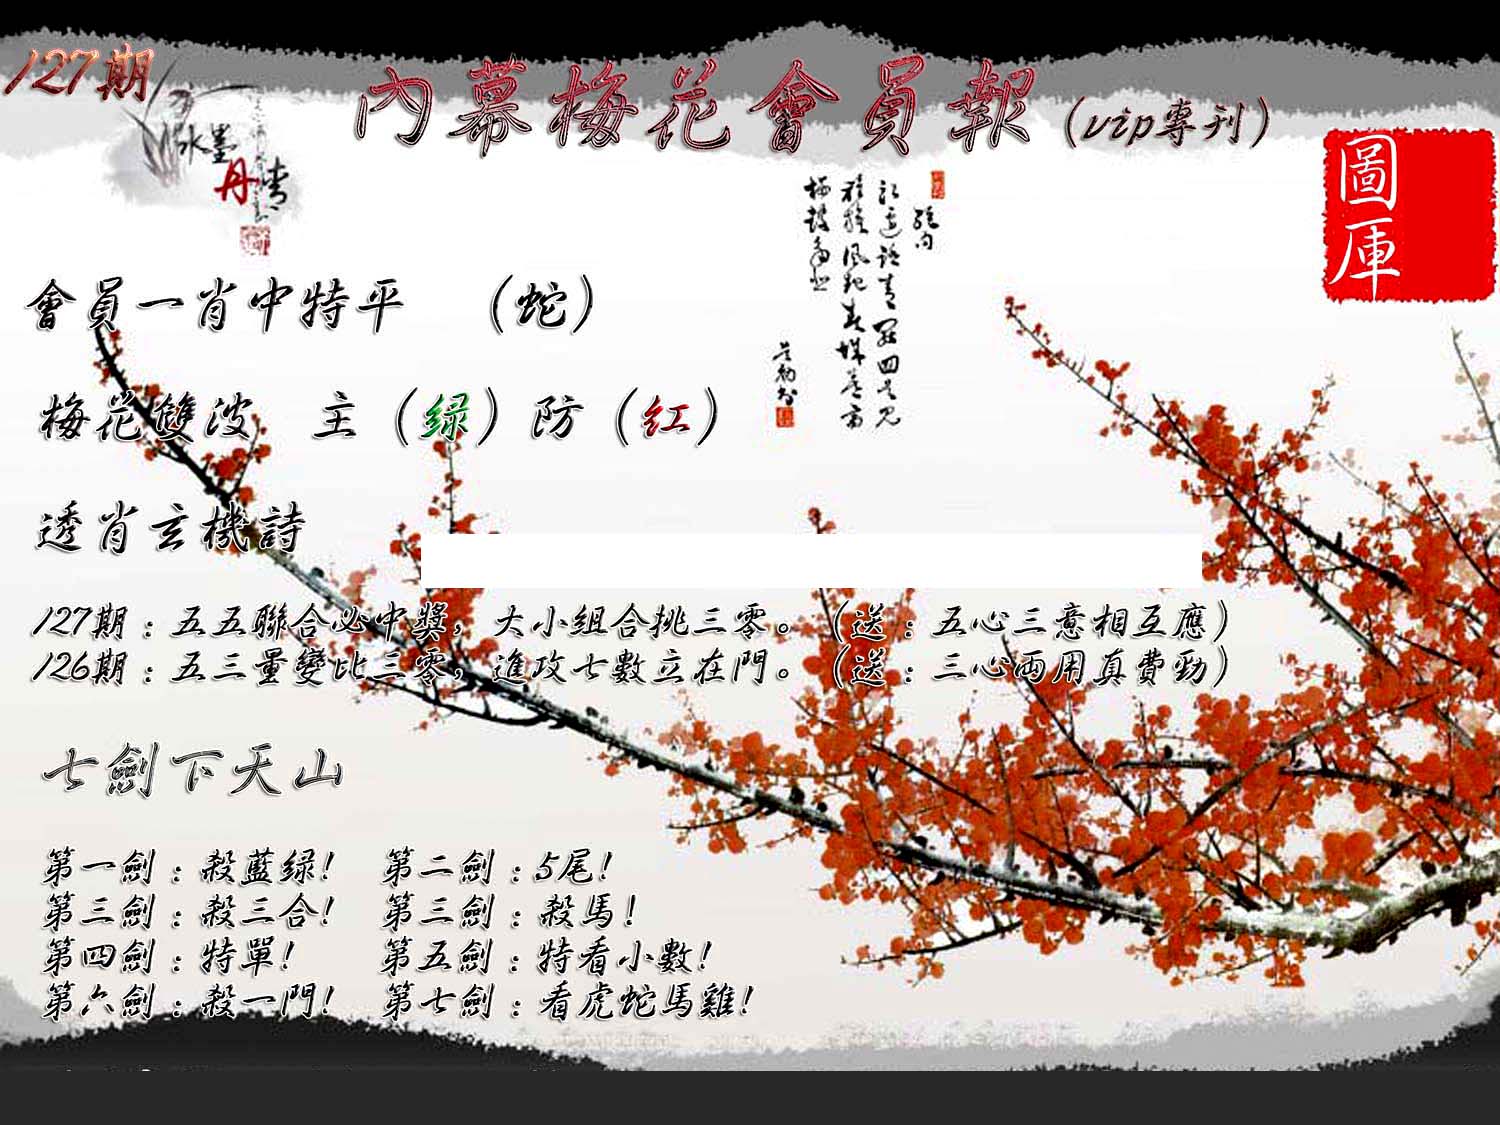 127期
內幕梅花會員報(vip專刊)
水墨
丹青
圖庫
會員一肖中特平 (蛇)
梅花雙波 主(绿)防(红)
透肖玄機詩
127期:五五聯合必中獎,大小組合挑三零。(送:五心三意相互應)
126期:五三量變比三零,進攻七數立在門。(送:三心兩用真費勁)
七劍下天山
第一劍:殺藍绿! 第二劍:5尾!
第三劍:殺三合! 第三劍:殺馬!
第四劍:特單! 第五劍:特看小數!
第六劍:殺一門! 第七劍:看虎蛇馬雞!